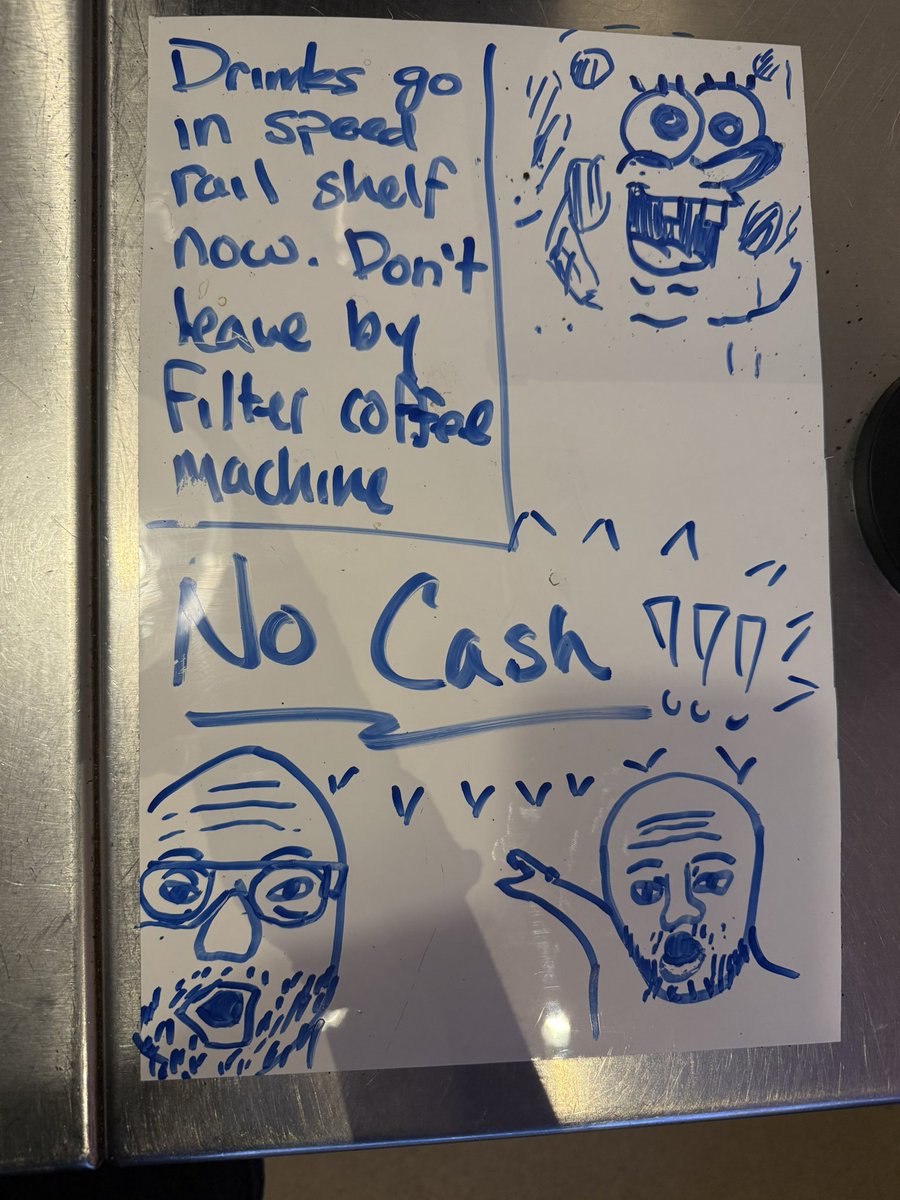 Drinks go
in speed
rail shelf
now. Don't
leave by
Filter coffee
machine
No Cash !!!